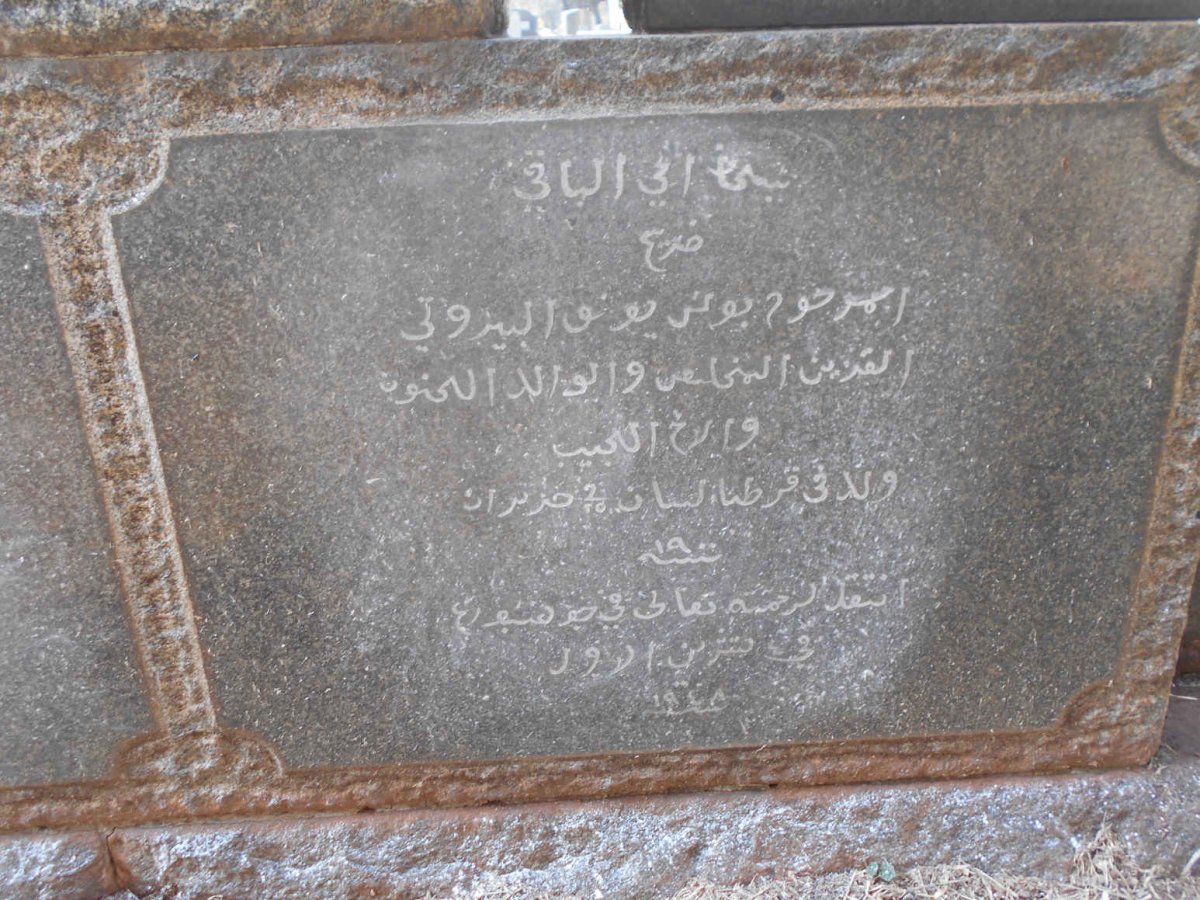 الحي الباقي
ضريح
المرحوم بولس يوسف البيروتي
القرين المخلص والوالد الحنون
والاخ الحبيب
ولد في قرطبا لبنان في حزيران
سنة ١٩
انتقل لرحمته تعالى في جوهنسبورغ
في تشرين الاول
سنة ١٩٤٨